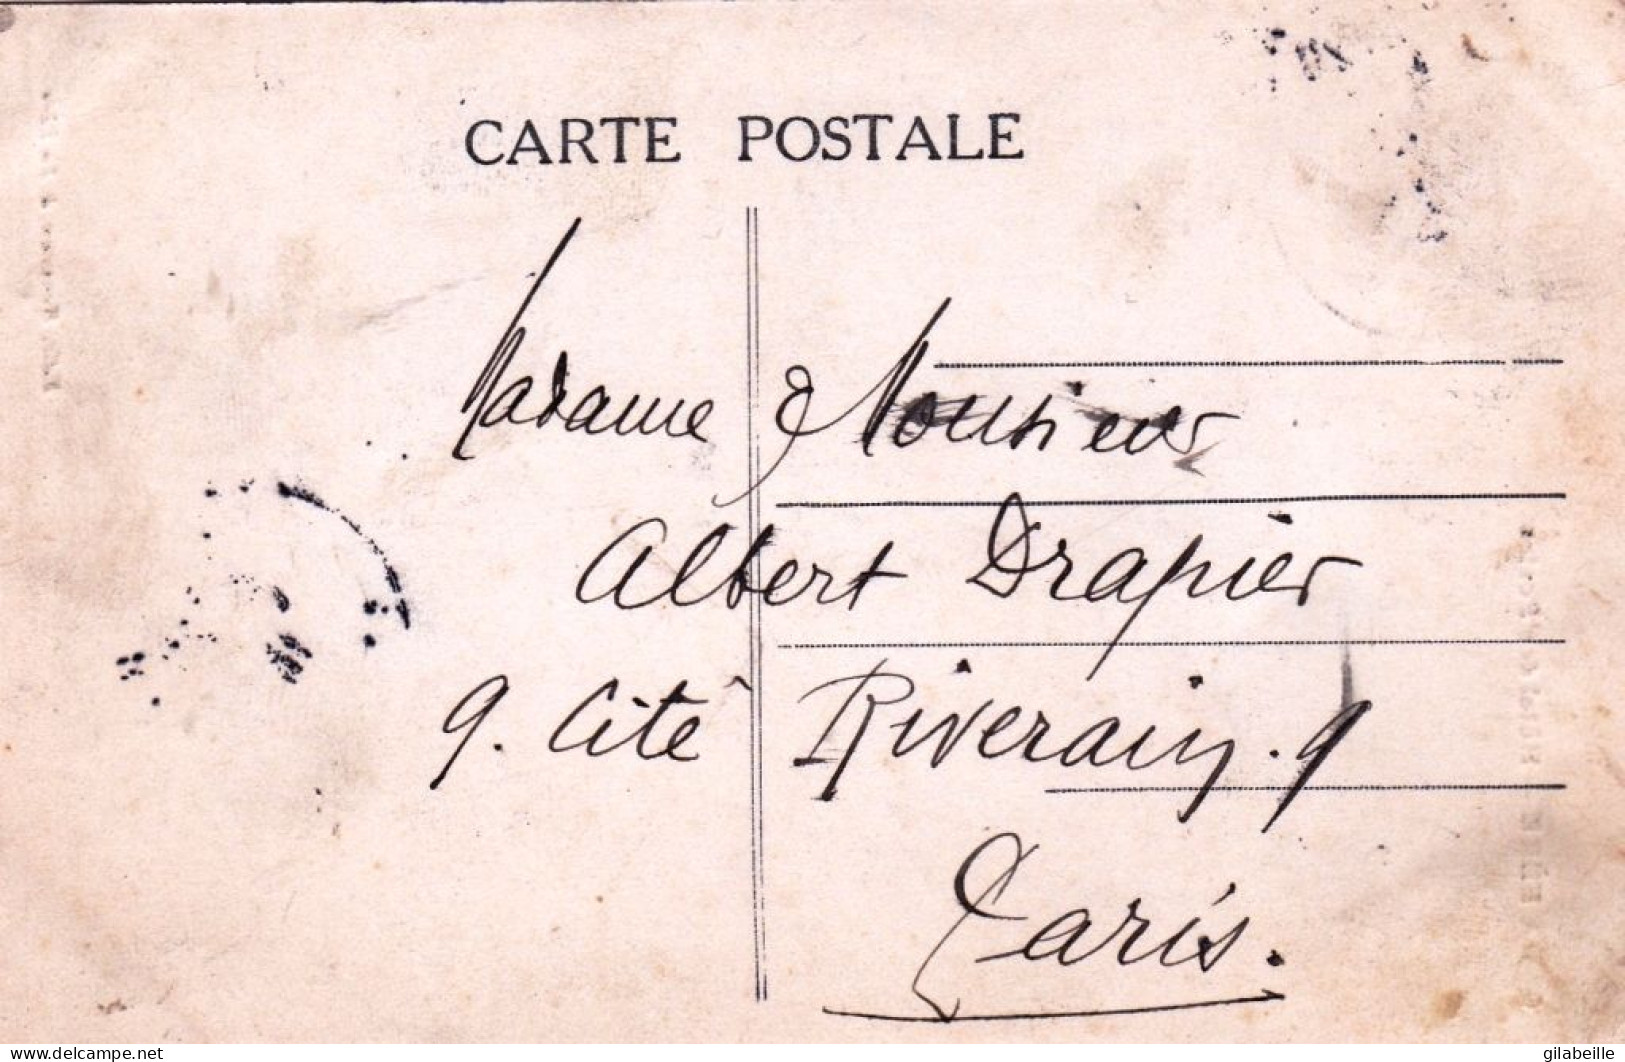 CARTE POSTALE
Madame & Monsieur
Albert Drapier
9. Cité Riverain. 9
Paris.
www.delcampe.net
gilabeille